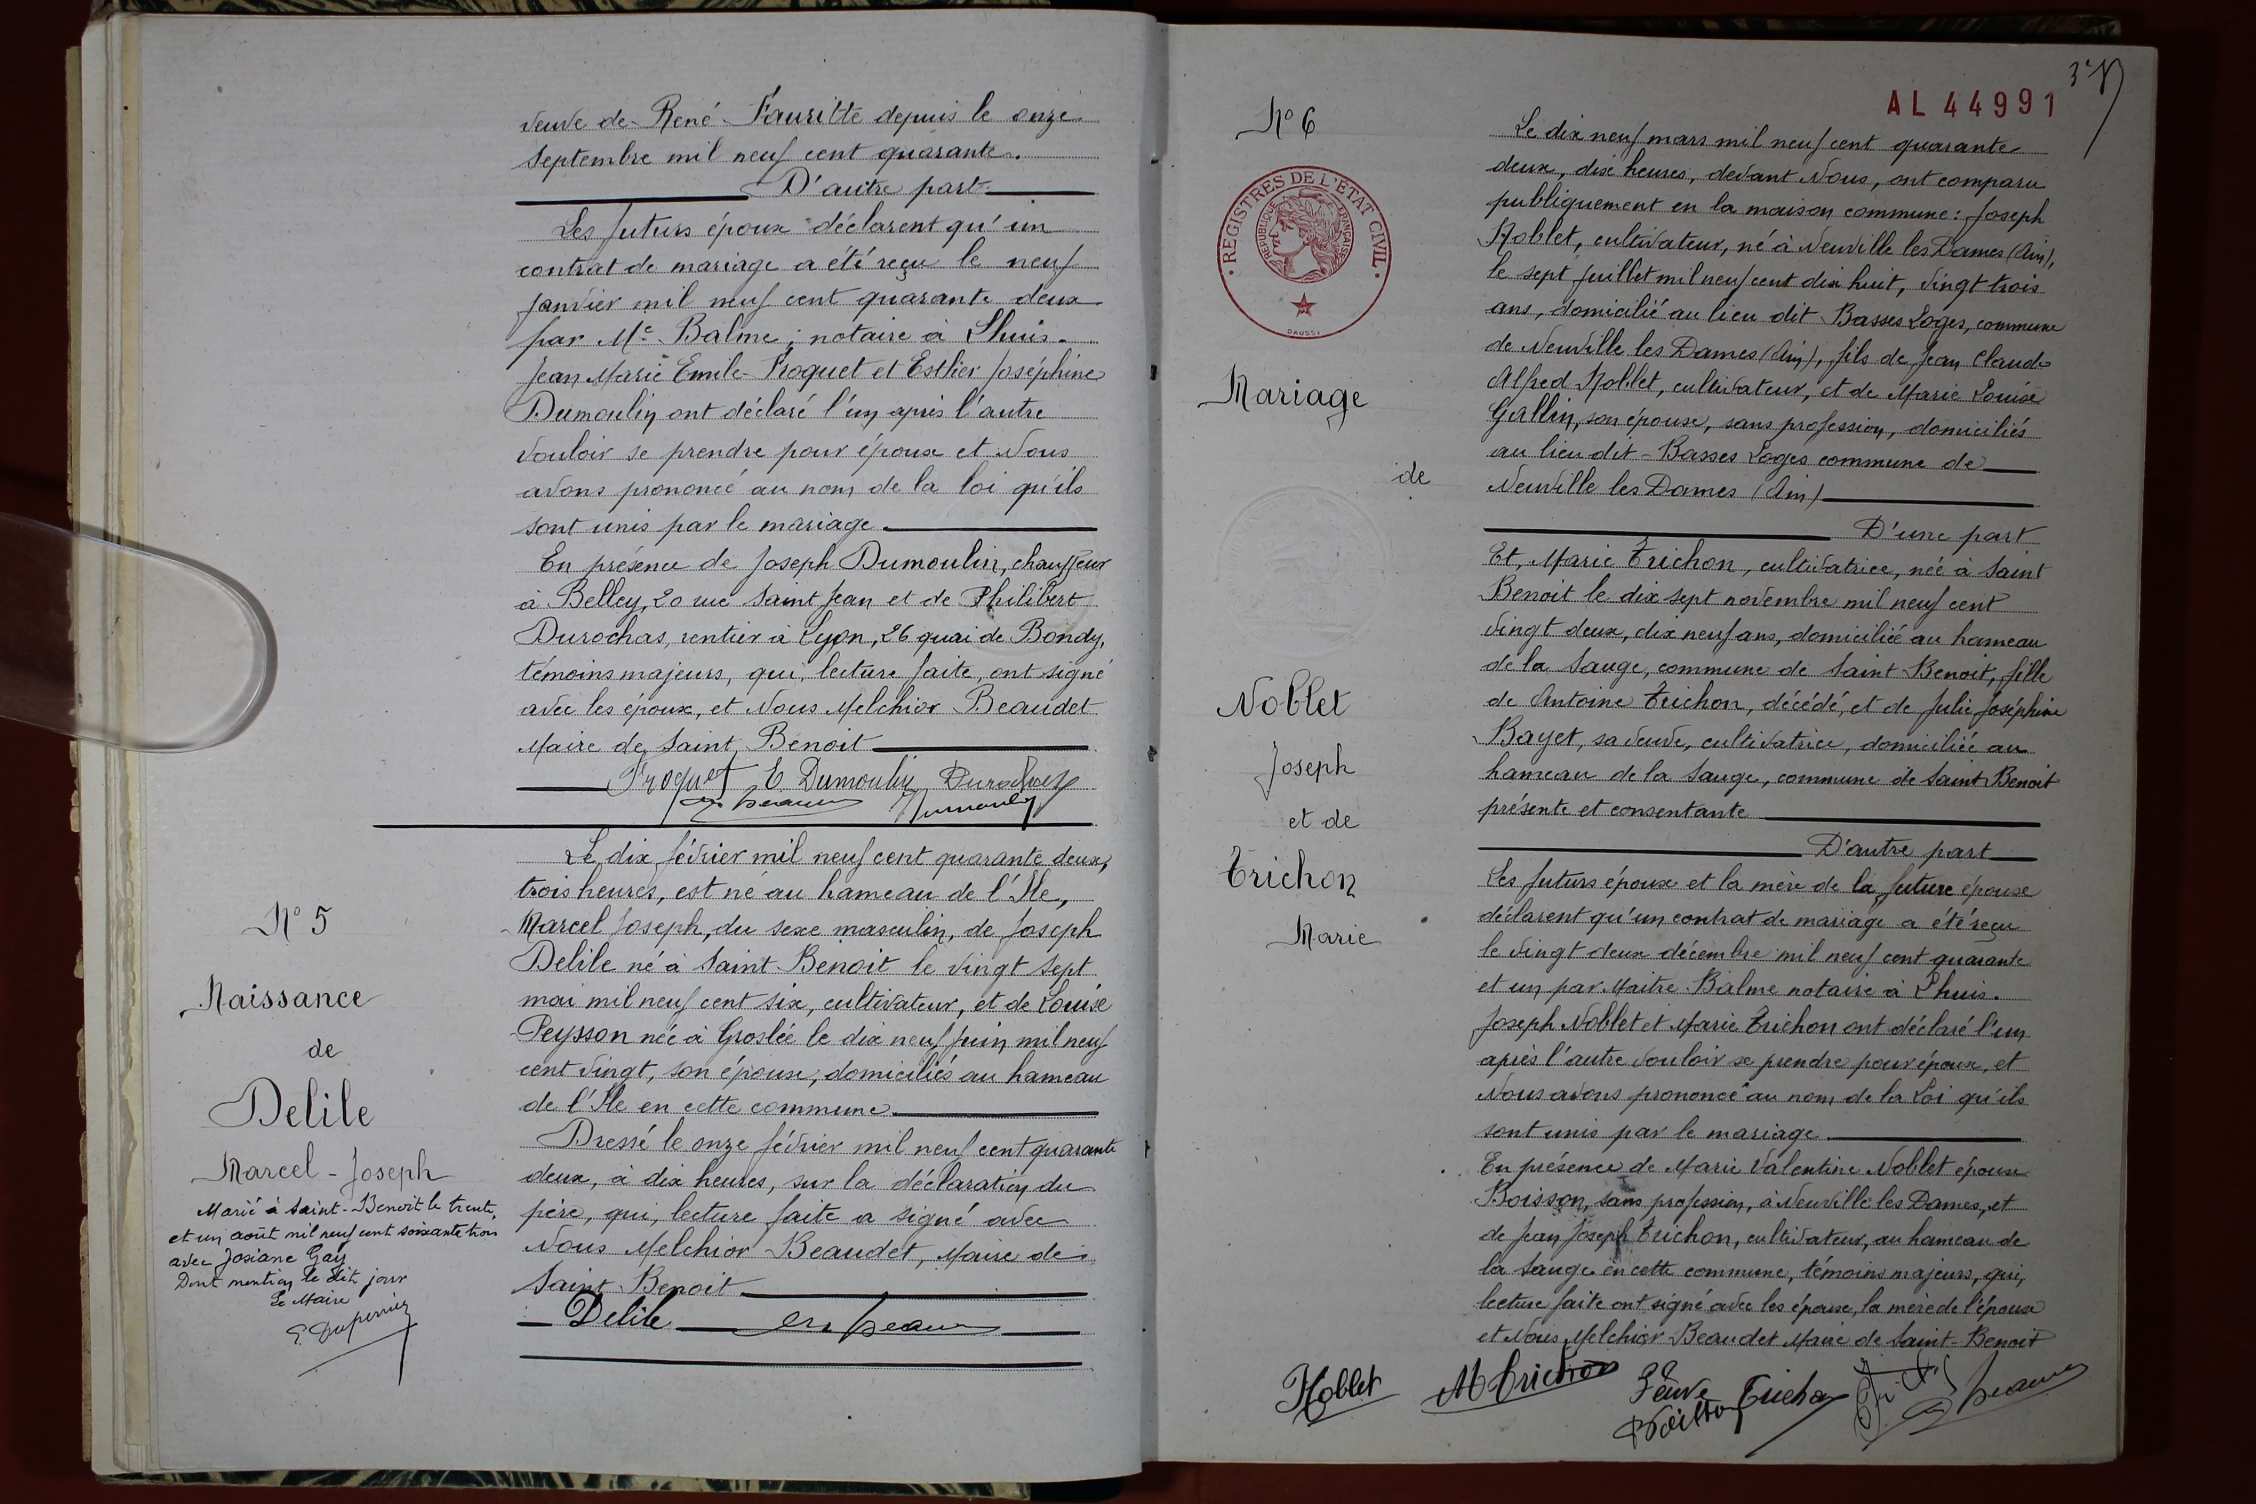 veuve de René Fauritte depuis le onze
septembre mil neuf cent quarante.
D'autre part
Les futurs époux déclarent qu'un
contrat de mariage a été reçu le neuf
janvier mil neuf cent quarante deux
par Me Balme, notaire à Lhuis.
Jean Marie Emile Proquet et Esther Joséphine
Dumoulin ont déclaré l'un après l'autre
vouloir se prendre pour époux et Nous
avons prononcé au nom de la loi qu'ils
sont unis par le mariage.
En présence de Joseph Dumoulin, chauffeur
à Belley, 20 rue Saint Jean et de Philibert
Durochas, rentier à Lyon, 26 quai de Bondy,
témoins majeurs, qui, lecture faite, ont signé
avec les époux, et Nous Melchior Beaudet
Maire de Saint Benoit
Proquet E Dumoulin Durochas
Dumoulin
N° 5
Naissance
de
Delile
Marcel-Joseph
Marié à Saint-Benoit le trente
et un août mil neuf cent soixante trois
avec Josiane Gay
Dont mention le dit jour
Le Maire
Le dix février mil neuf cent quarante deux,
trois heures, est né au hameau de l'Ile,
Marcel Joseph, du sexe masculin, de Joseph
Delile né à Saint-Benoit le vingt sept
mai mil neuf cent six, cultivateur, et de Louise
Peysson née à Groslée le dix neuf juin mil neuf
cent vingt, son épouse, domiciliés au hameau
de l'Ile en cette commune.
Dressé le onze février mil neuf cent quarante
deux, à dix heures, sur la déclaration du
père, qui, lecture faite a signé avec
Nous Melchior Beaudet, Maire de
Saint-Benoit
Delile
N° 6
REGISTRES DE L'ETAT CIVIL
REPUBLIQUE FRANÇAISE
DAUSSI
Mariage
de
Noblet
Joseph
et de
Trichon
Marie
AL 44991
Le dix neuf mars mil neuf cent quarante
deux, dix heures, devant Nous, ont comparu
publiquement en la maison commune : Joseph
Noblet, cultivateur, né à Neuville les Dames (Ain),
le sept juillet mil neuf cent dix huit, vingt trois
ans, domicilié au lieu dit Basses Loges, commune
de Neuville les Dames (Ain), fils de Jean Claude
Alfred Noblet, cultivateur, et de Marie Louise
Gallin, son épouse, sans profession, domiciliés
au lieu dit - Basses Loges commune de
Neuville les Dames (Ain)
D'une part
Et, Marie Trichon, cultivatrice, née à Saint
Benoit le dix sept novembre mil neuf cent
vingt deux, dix neuf ans, domiciliée au hameau
de la Sauge, commune de Saint-Benoit, fille
de Antoine Trichon, décédé, et de Julie Joséphine
Bayet, sa veuve, cultivatrice, domiciliée au
hameau de la Sauge, commune de Saint Benoit
présente et consentante
D'autre part
Les futurs époux et la mère de la future épouse
déclarent qu'un contrat de mariage a été reçu
le vingt deux décembre mil neuf cent quarante
et un par Maitre Balme notaire à Lhuis.
Joseph Noblet et Marie Trichon ont déclaré l'un
après l'autre vouloir se prendre pour époux, et
Nous avons prononcé au nom de la Loi qu'ils
sont unis par le mariage
En présence de Marie Valentine Noblet épouse
Boisson, sans profession, à Neuville les Dames, et
de Jean Joseph Trichon, cultivateur, au hameau de
la Sauge en cette commune, témoins majeurs, qui,
lecture faite ont signé avec les époux, la mère de l'épouse
et Nous Melchior Beaudet Maire de Saint-Benoit
Noblet M Trichon Veuve Trichon